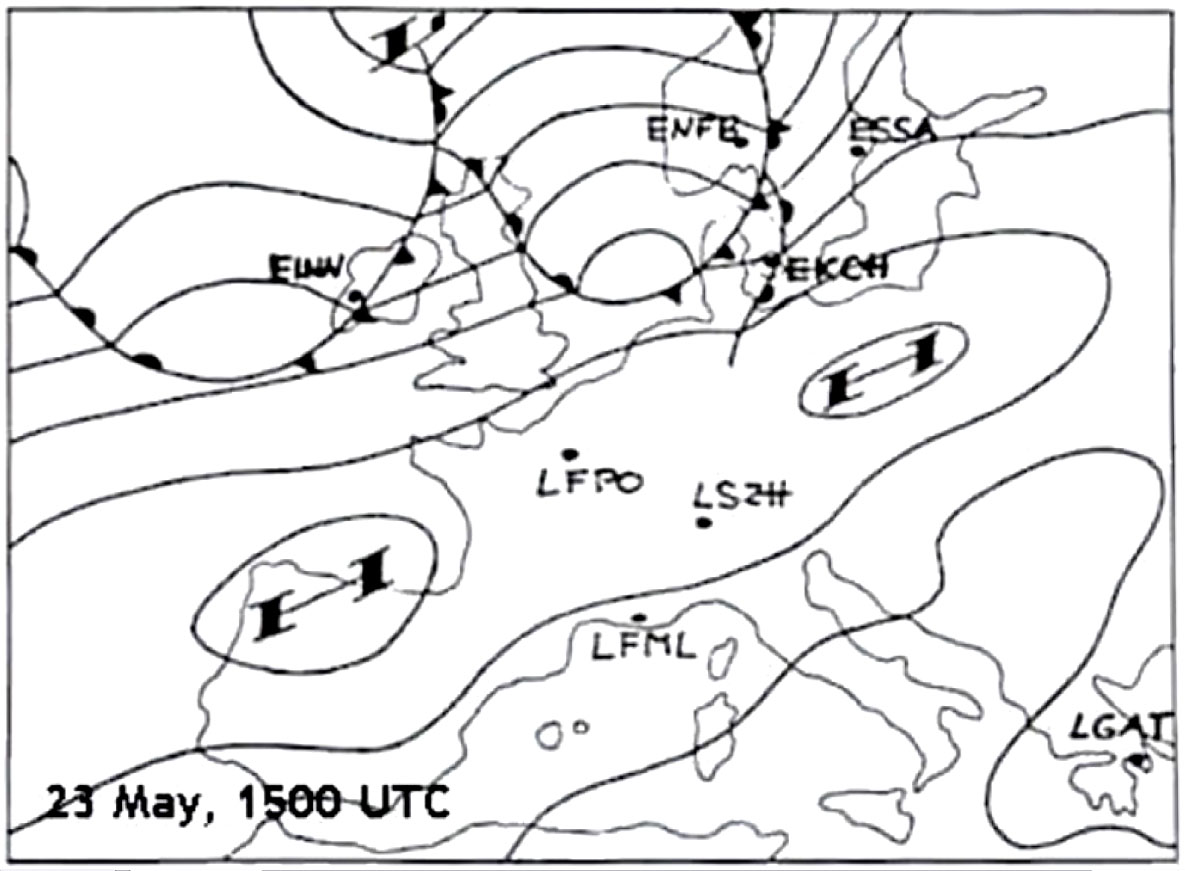 ENFB
ESSA
EINN
EKCH
H
LFPO
LSZH
H
LFML
LGAT
23 May, 1500 UTC